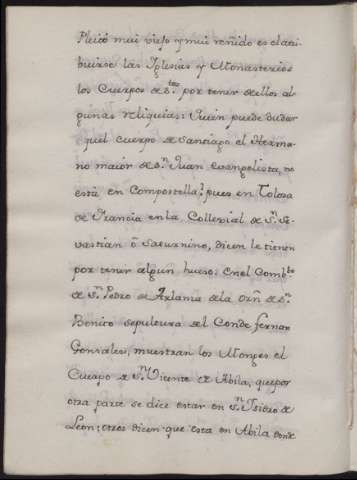 Pleito mui viejo y mui reñido es el atri
buirse las Iglesias y Monasterios
los Cuerpos de S.tos por tener dellos al
gunas reliquias: Quien puede dudar
que el cuerpo de Santiago el Herma-
no maior de S.n Juan evangelista, no
está en Compostella? pues en Tolosa
de Francia en la Collexial de S.n Se-
vastian ō Saturnino, dicen le tienen
por tener algun hueso: en el Comb.to
de S.n Pedro de Arlansa de la Orñ de S.n
Benito sepultura del Conde fernan
Gonsales, muestran los Monges el
Cuerpo de S.n Vicente de Abila, que por
otra parte se dice estar en S.n Isidro de
Leon; otros dicen que esta en Abila donde